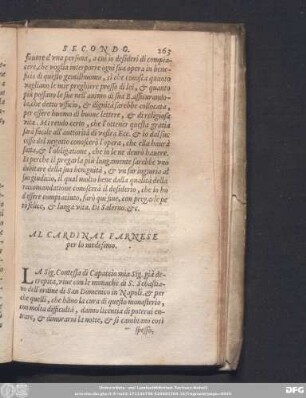 SECONDO. 263
fauore d'vna persona, a cui io desideri di compia-
cere, che voglia interporre ogni sua opera in bene-
ficio di questo gentilhuomo, si che conosca quanto
vagliano le mie preghiere presso di lei, & quanto
poi possano le sue nell'animo di sua
lia, che detto vfficio, & dignità sarebbe collocata,
per essere huomo di buone lettere, & di religiosa
vita. Mi rendo certo, che l'ottener questa gratia
sarà facile all'autorità di vostra Ecc. & io dal suc
cesso del negotio conoscerò l'opera, che ella haurà
fatta, & l'obligatione, che io le ne deurò hauere.
Et perche il pregarla più lungamente sarebbe vno
dubitare della sua benignità, & vn far ingiuria al
suo giudicio, il qual molto bene dalla qualità della
raccomandatione conoscerà il desiderio, che io hò
d'essere compiaciuto, farò qui fine, con pregarle per
petua felice, & lunga vita. Di Salerno. &c.
AL CARDINAL FARNESE
per lo medesimo.
LA Sig. Contessa di Capaccio mia Sig. già de
crepata, viue con le monache di S. Sebastia-
no dell'ordine di San Domenico in Napoli. & per
che quelli, che hãno la cura di questo monasterio,
con molta difficultà, danno licentia di poterui en-
trare, & dimorarui la notte, & si cambiano così
spesso,